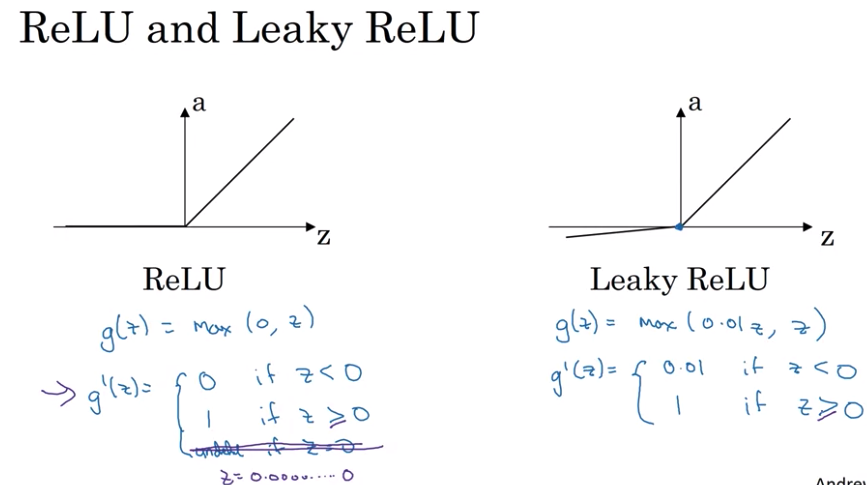 ReLU and Leaky ReLU
a
z
ReLU
g(z) = max (0, z)
→ g'(z) = { 0 if z < 0
1 if z ≥ 0
if z = 0
z = 0.0000.....0
a
z
Leaky ReLU
g(z) = max (0.01z, z)
g'(z) = { 0.01 if z < 0
1 if z ≥ 0
Andrew